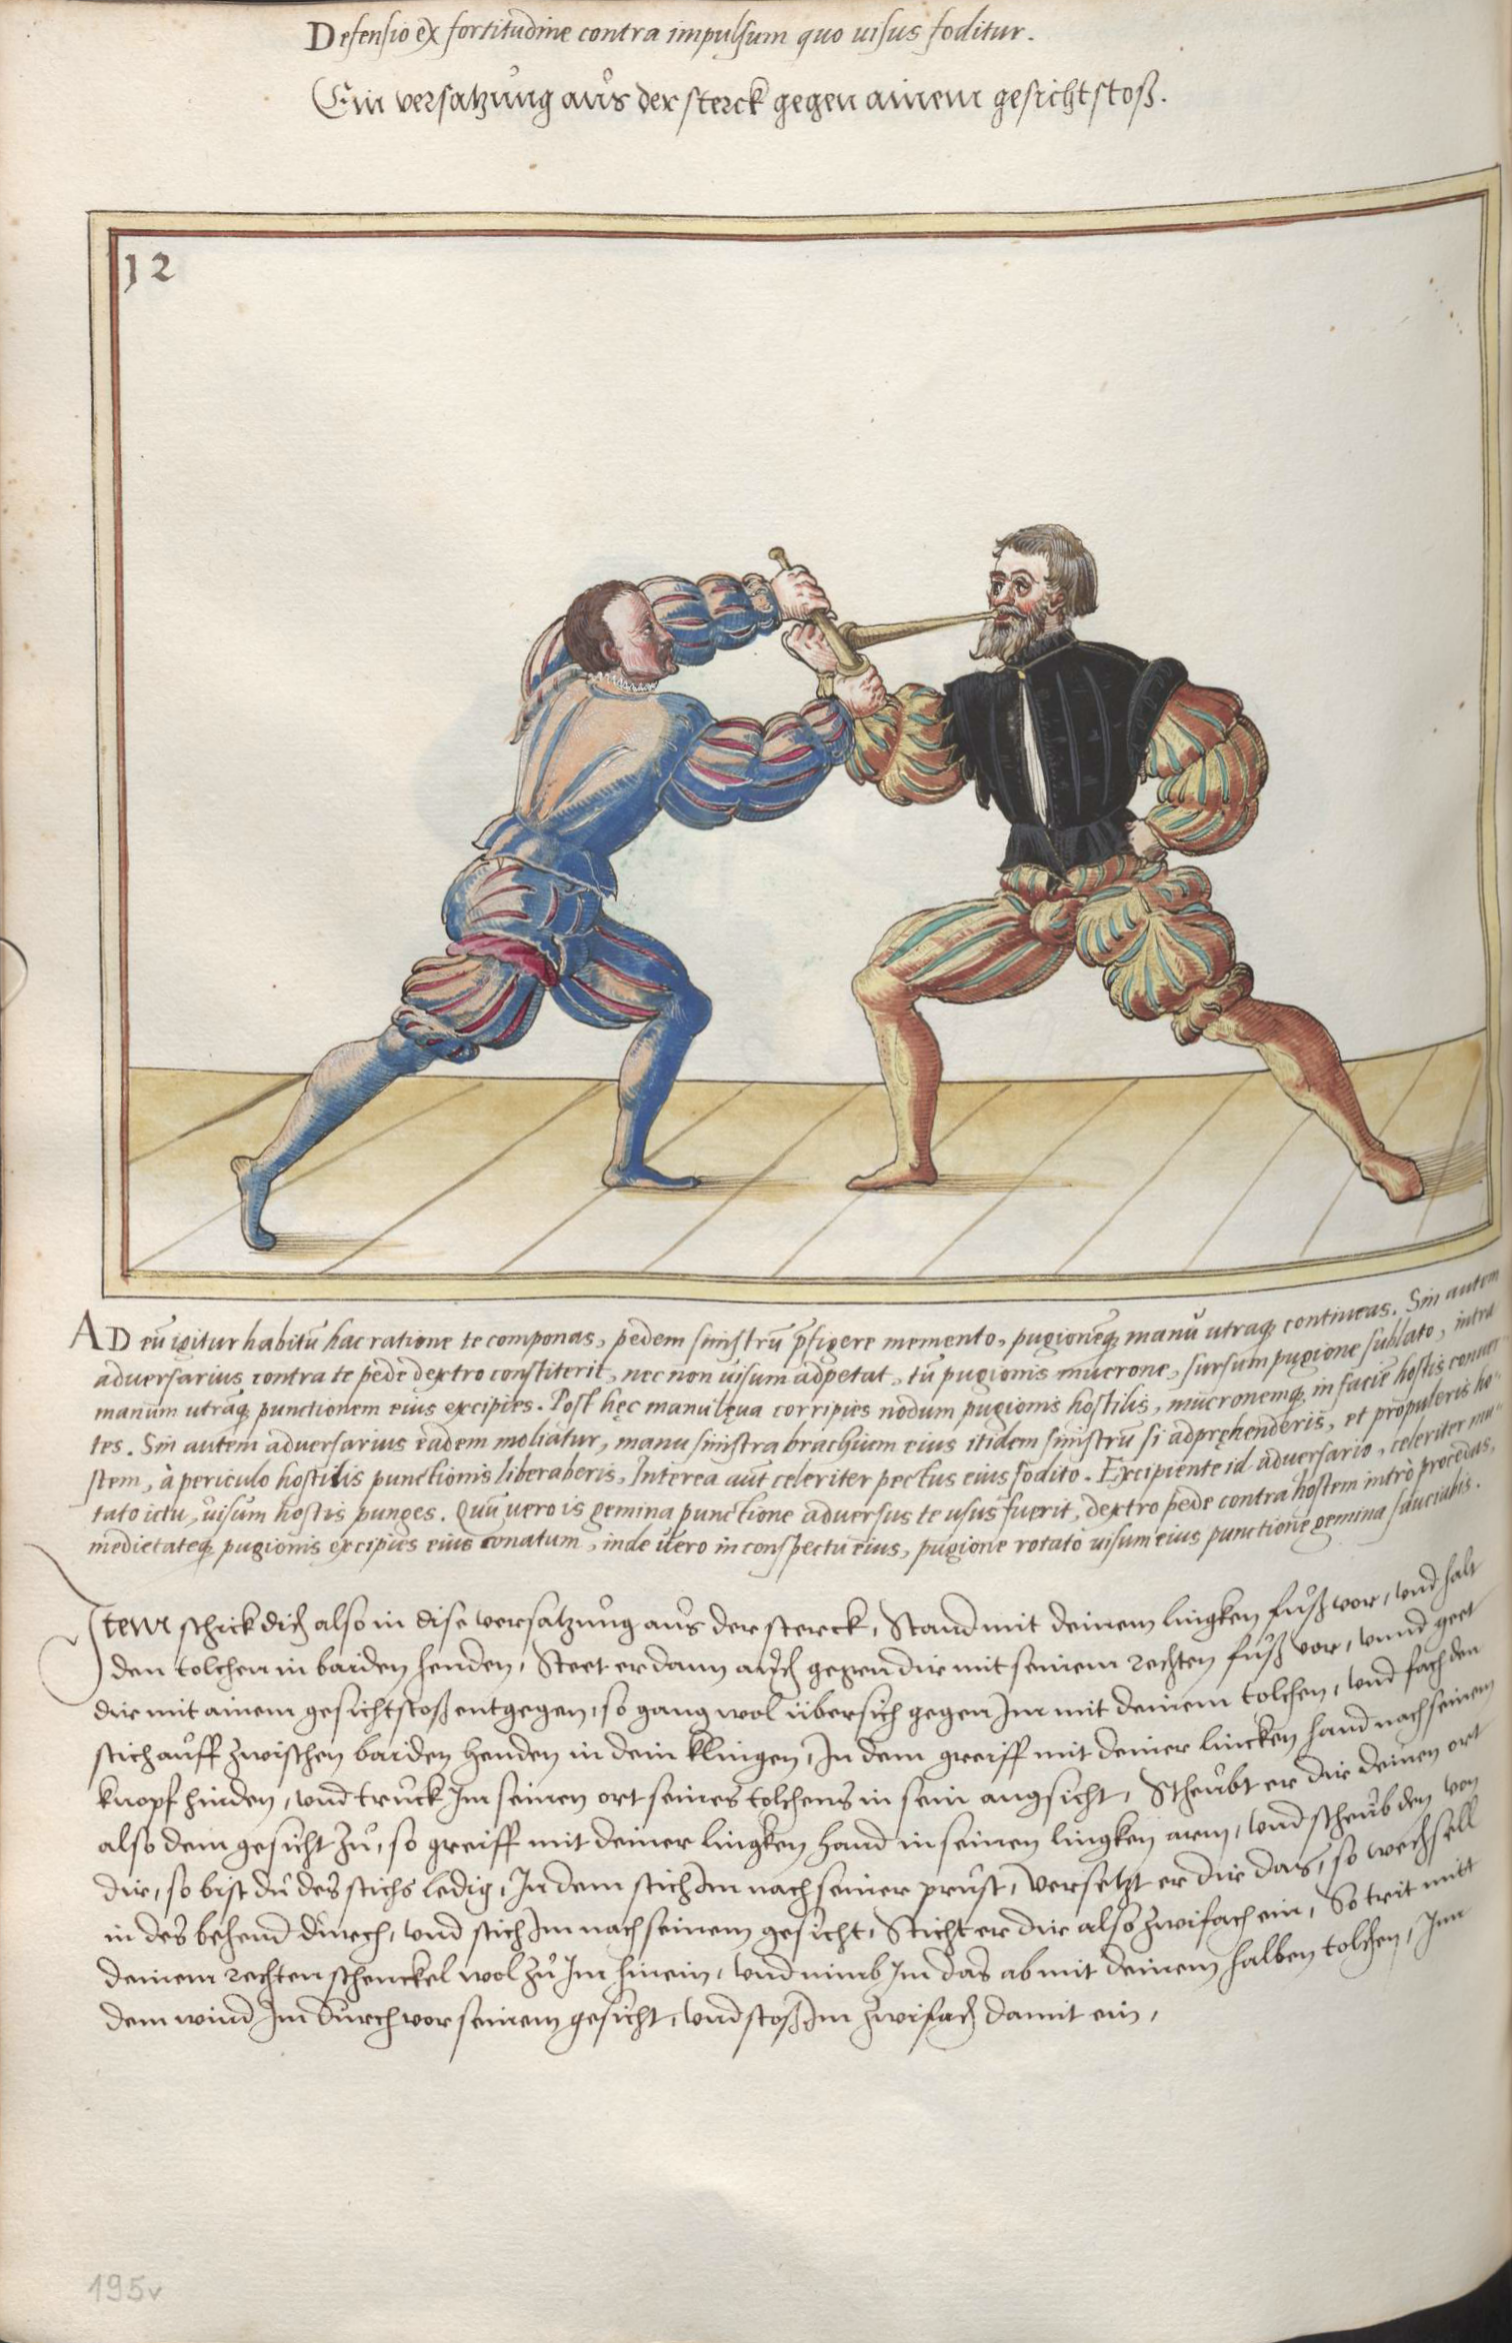 Defensio ex fortitudine contra impulsum quo uisus foditur.
Ein versatzung aus der sterck gegen ainem gesichtstoß.
12
AD eū igitur habitū hac ratione te componas, pedem sinistrū p̄figere memento, pugionēq; manu utraq; contineas. Sin autem
aduersarius contra te pede dextro constiterit, nec non uisum adpetat, tū pugionis mucrone, sursum pugione sublato, intra
manum utrāq; punctionem eius excipies. Post hęc manu lęua corripies nodum pugionis hostilis, mucronemq; in faciē hostis conuer-
tes. Sin autem aduersarius eadem moliatur, manu sinistra brachium eius itidem sinistrū si adprehenderis, et propuleris ho-
stem, à periculo hostilis punctionis liberaberis, Interea aūt celeriter pectus eius fodito. Excipiente id aduersario, celeriter mu-
tato ictu, uisum hostis punges. Quū uero is gemina punctione aduersus te usus fuerit, dextro pede contra hostem intrò procedas,
medietateq; pugionis excipies eius conatum, inde uero in conspectu eius, pugione rotato uisum eius punctione gemina sauciabis.
Item schick dich also in dise versatzung aus der sterck, Stand mit deinem lingken fuß vor, vnd halt
den tolchen in baiden henden, Steet er dann auch gegen dir mit seinem rechten fuß vor, vnnd geet
dir mit ainem gesichtstoß entgegen, so gang wol übersich gegen Im mit deinem tolchen, vnd fach den
stich auff zwischen baiden henden in dein klingen, In dem greiff mit deiner lincken hand nach seinem
knopf hinden, vnd truck Im seinen ort seines tolchens in sein angsicht, Scheubt er dir deinen ort
also dem gesicht zu, so greiff mit deiner lingken hand in seinen lingken arm, vnd scheub den von
dir, so bist du des stichs ledig, In dem stich Im nach seiner prust, versetzt er dir das, so wechsell
in des behend durch, vnd stich Im nach seinem gesicht, Sticht er dir also zwifach ein, So trit mitt
deinem rechten schenckel wol zu Im hinein, vnd nimb Im das ab mit deinem halben tolchen, Inn
dem wind Im durch vor seinem gesicht, vnd stoß Im zwifach damit ein,
195v